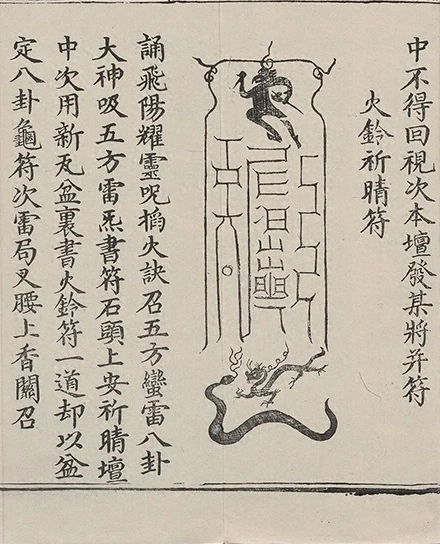 中不得回視次本壇發某將并符
火鈴祈晴符
誦飛陽耀靈呪搯火訣召五方蠻雷八卦
大神吸五方雷炁書符石頭上安祈晴壇
中次用新瓦盆裏書火鈴符一道却以盆
定八卦龜符次雷局叉腰上香關召